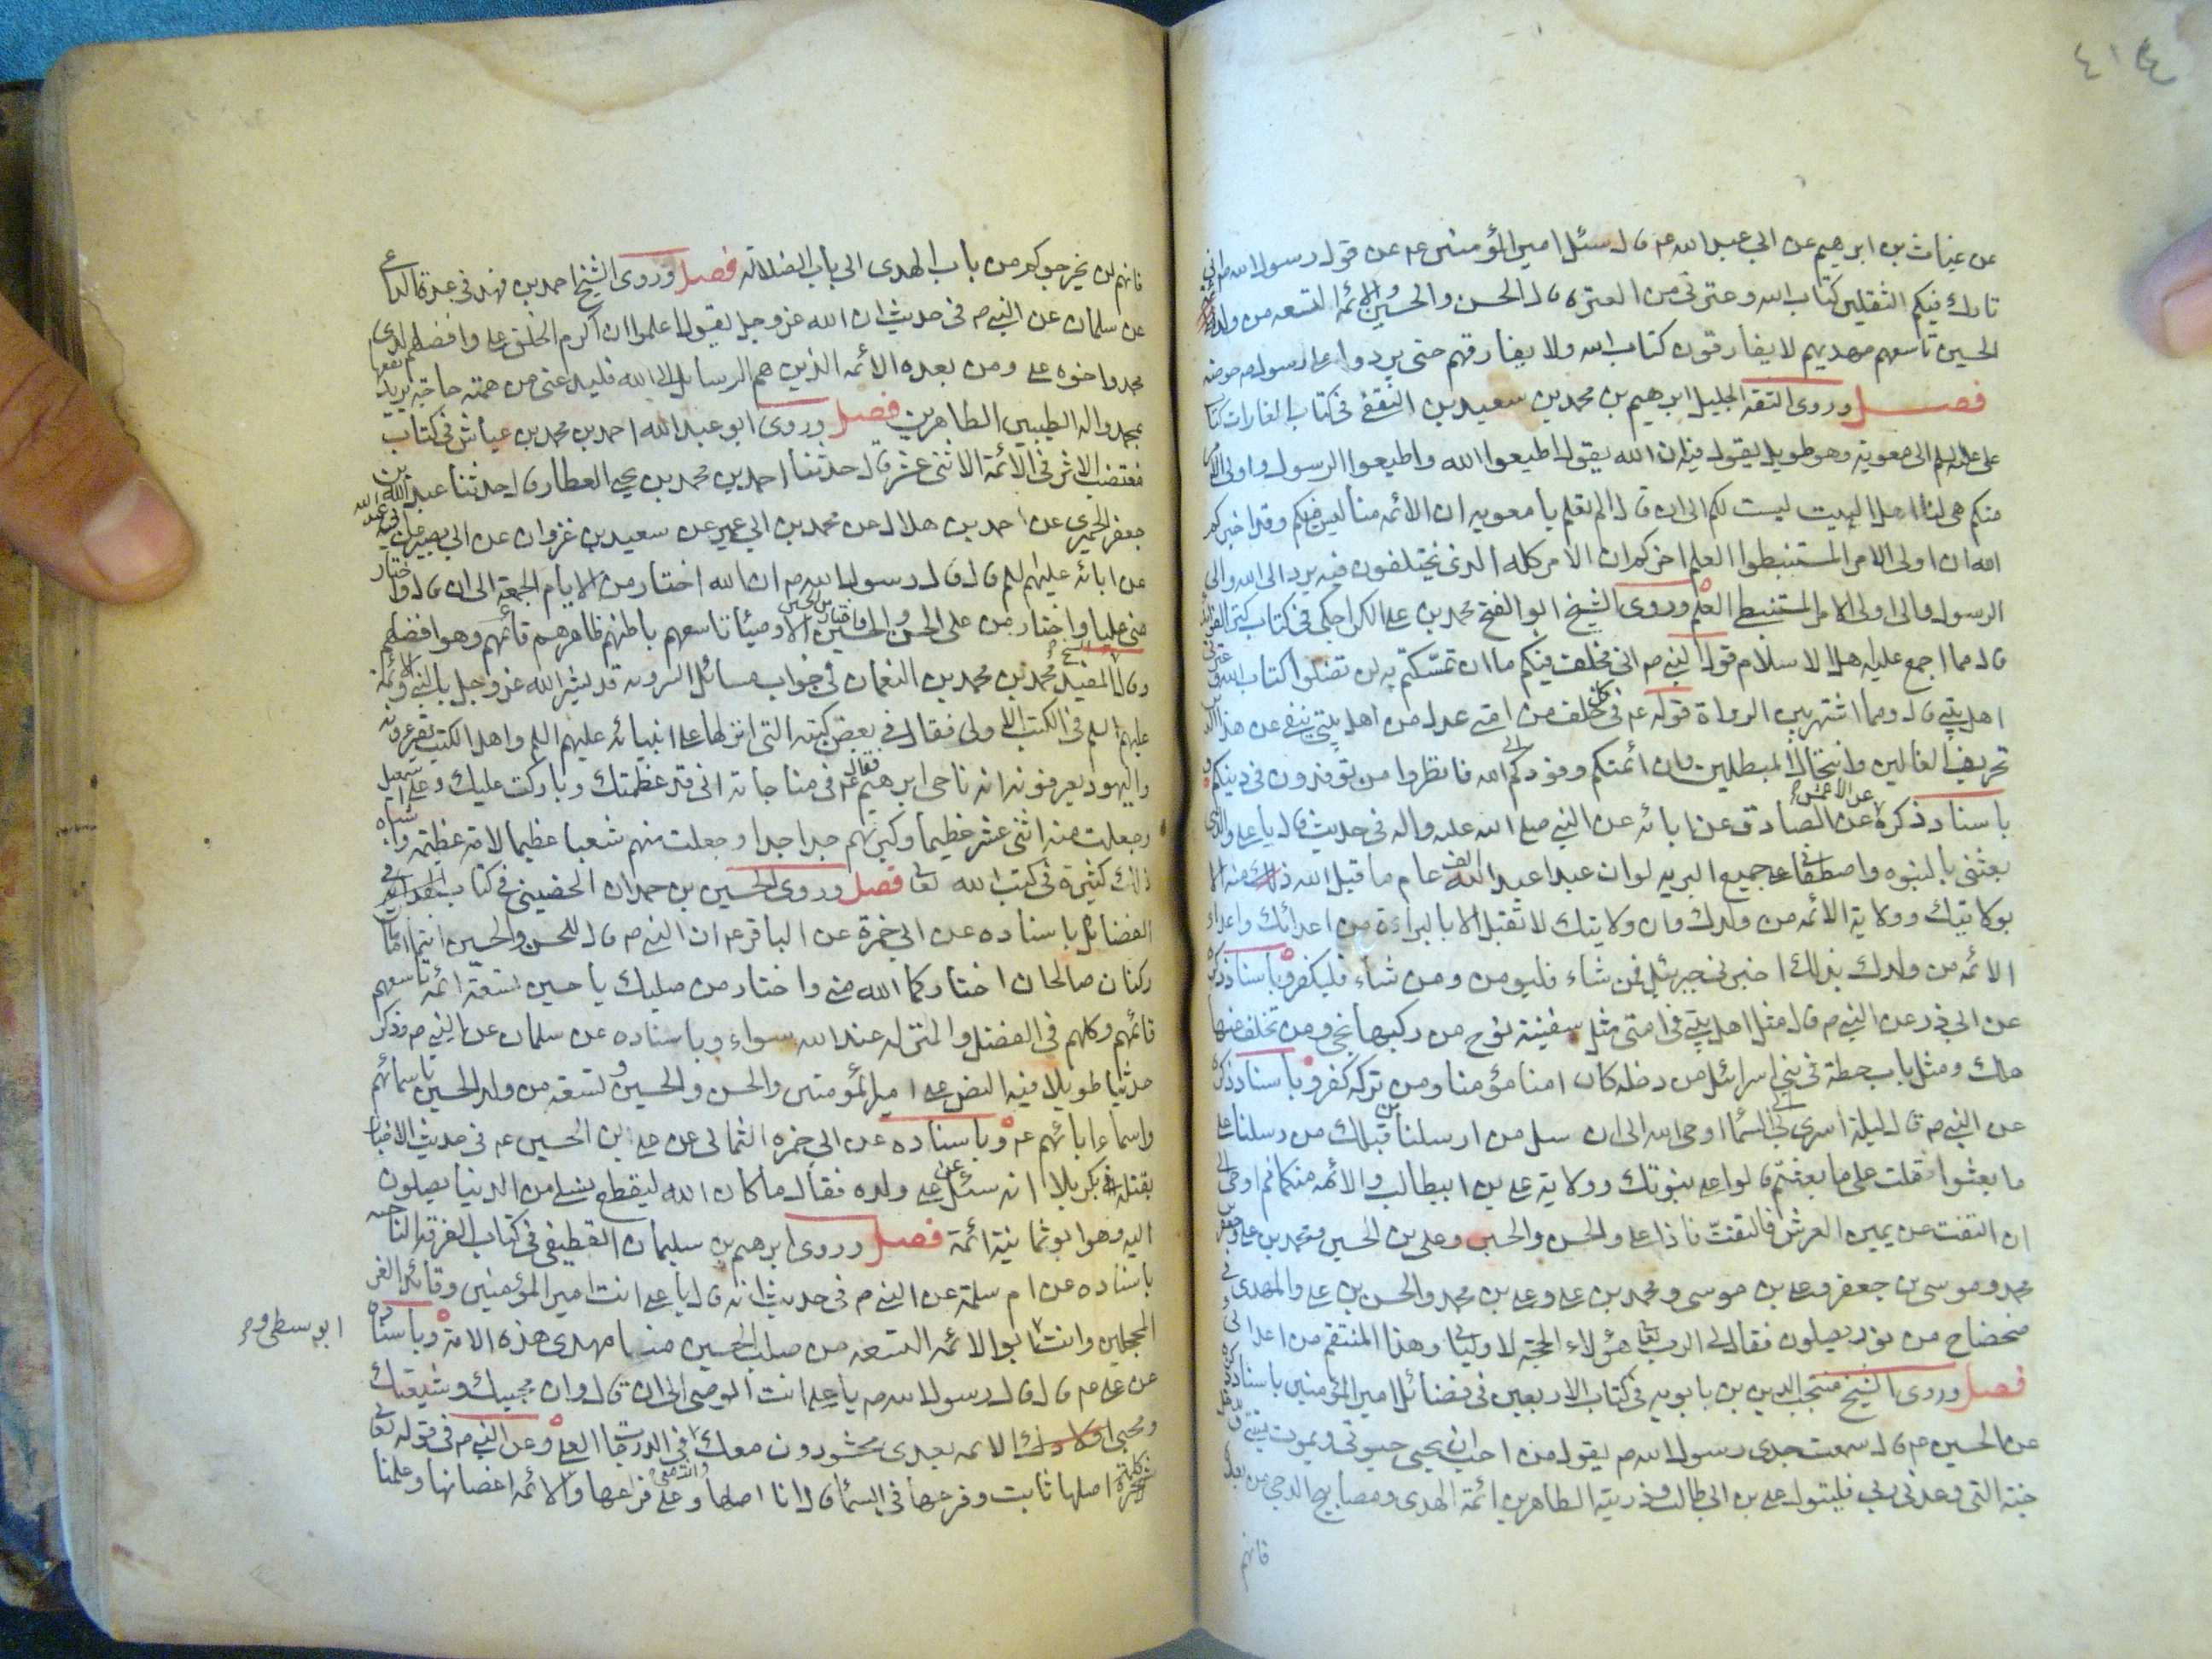 ٤١٤
عن غياث بن ابرهيم عن ابي عبد الله عم قال سئل امير المؤمنين عم عن قول رسول الله ص اني
تارك فيكم الثقلين كتاب الله وعترتي من العترة قال الحسن والحسين والائمة التسعة من ولد
الحسين تاسعهم مهديهم لا يفارقون كتاب الله ولا يفارقهم حتى يردوا على رسول الله ص حوضه
فصل وروى الثقة الجليل ابرهيم بن محمد بن سعيد بن الثقفي في كتاب الغارات كتاب
علي عليه السلم الى معوية وهو طويل يقول فيه ان الله يقول اطيعوا الله واطيعوا الرسول واولي الامر
منكم هي لنا اهل البيت ليست لكم الى ان قال الم تعلم يا معوية ان الائمة منا ليس منكم وقد اخبركم
الله ان اولي الامر المستنبطوا العلم اخبركم ان الامر كله الذي تختلفون فيه يرد الى الله والى
الرسول والى اولي الامر المستنبطي العلم وروى الشيخ ابو الفتح محمد بن علي الكراجكي في كتاب كنز الفوائد
قال مما اجمع عليه اهل الاسلام قول النبي ص اني مخلف فيكم ما ان تمسكتم به لن تضلوا كتاب الله وعترتي
اهل بيتي قال ومما اشتهر بين الرواة قوله عم في كل خلف من امتي عدل من اهل بيتي ينفي عن هذا الدين
تحريف الغالين وانتحال المبطلين وان ائمتكم وفودكم الى الله فانظروا من توفدون في دينكم و
باسناد ذكره عن الاعمش عن الصادق عن ابائه عن النبي صلى الله عليه واله في حديث قال يا علي والذي
بعثني بالنبوة واصطفاني على جميع البرية لو ان عبدا عبد الله الف عام ما قبل الله ذلك منه الا
بولايتك وولاية الائمة من ولدك وان ولايتك لا تقبل الا بالبراءة من اعدائك واعداء
الائمة من ولدك بذلك اخبرني جبرئيل فمن شاء فليومن ومن شاء فليكفر وباسناد ذكره
عن ابي ذر عن النبي ص قال مثل اهل بيتي في امتي مثل سفينة نوح من ركبها نجى ومن تخلف عنها
هلك ومثل باب حطة في بني اسرائل من دخله كان امنا مؤمنا ومن تركه كفر وباسناد ذكره
عن النبي ص قال ليلة اسرى بي الى السما اوحى الله الى ان سل من ارسلنا من قبلك من رسلنا على
ما بعثوا فقلت على ما بعثتم قالوا على نبوتك وولاية علي بن ابيطالب والائمة منكما ثم اوحى الى
ان التفت عن يمين العرش فالتفت فاذا علي والحسن والحسين وعلي بن الحسين ومحمد بن علي وجعفر بن
محمد وموسى بن جعفر وعلي بن موسى ومحمد بن علي وعلي بن محمد والحسن بن علي والمهدي في
ضحضاح من نور يصلون فقال لي الرب تعالى هؤلاء الحجج لاوليائي وهذا المنتقم من اعدائي
فصل وروى الشيخ منتجب الدين بن بابويه في كتاب الاربعين في فضائل امير المؤمنين باسناده
عن الحسين عم قال سمعت جدي رسول الله ص يقول من احب ان يحيى حيوتي ويموت ميتتي ويدخل
جنة التي وعدني ربي فليتول علي بن ابي طالب وذريته الطاهرين ائمة الهدى ومصابيح الدجى من بعده
فانهم
فانهم لن يخرجوكم من باب الهدى الى باب الضلالة فصل وروى الشيخ احمد بن فهد في عدة الداعي
عن سلمان عن النبي ص في حديث ان الله عز وجل يقول اعلموا ان اكرم الخلق علي وافضلهم لدي
محمد واخوه علي ومن بعده الائمة الذين هم الوسائل الى الله فليدعني من همته حاجة يريد نفعها
بمحمد واله الطيبين الطاهرين فصل وروى ابو عبد الله احمد بن محمد بن عياش في كتاب
مقتضب الاثر في الائمة الاثني عشر قال حدثنا احمد بن محمد بن يحيى العطار قال حدثنا عبد الله بن
جعفر الحميري عن احمد بن هلال عن محمد بن ابي عمير عن سعيد بن غزوان عن ابي بصير عن ابي عبد الله
عن ابائه عليهم السلم قال قال رسول الله ص ان الله اختار من الايام الجمعة الى ان قال واختار
مني عليا واختار من علي الحسن والحسين واختار من الحسين الاوصياء تاسعهم باطنهم ظاهرهم قائمهم وهو افضلهم
وقال الشيخ المفيد محمد بن محمد بن النعمان في جواب مسائل السروية قد بشر الله عز وجل بالنبي والائمة
عليهم السلم في الكتب الاولى فقال في بعض كتبه التي انزلها على انبيائه عليهم السلم واهل الكتب يقرؤنه
واليهود يعرفونه انه ناجى ابرهيم عم فقال في مناجاته اني قد عظمتك وباركت عليك وعلى اسمعيل
وجعلت منه اثني عشر عظيما وكبرتهم جدا جدا وجعلت منهم شعبا عظيما لامة عظيمة واشباه
ذلك كثيرة في كتب الله تعالى فصل وروى الحسين بن حمدان الحضيني في كتاب الهداية في
الفضائل باسناده عن ابي حمزة عن الباقر عم ان النبي ص قال للحسن والحسين انتما امامان
ركنان صالحان اختاركما الله مني واختار من صلبك يا حسين تسعة ائمة تاسعهم
قائمهم وكلهم في الفضل والمنزلة عند الله سواء وباسناده عن سلمان عن النبي ص وذكر
حديثا طويلا فيه النص على امير المؤمنين والحسن والحسين وتسعة من ولد الحسين باسمائهم
واسماء ابائهم عم وباسناده عن ابي حمزة الثمالي عن علي بن الحسين عم في حديث الاخبار
بقتله بكربلا انه سئل عن علي ولده فقال ما كان الله ليقطع نسلي من الدنيا يصلون
اليه وهو ابو ثمانية ائمة فصل وروى ابرهيم بن سليمان القطيفي في كتاب الفرقة الناجية
باسناده عن ام سلمة عن النبي ص في حديث انه قال يا علي انت امير المؤمنين وقائد الغر
المحجلين وانت ابو الائمة التسعة من صلب الحسين منا مهدي هذه الامة وباسناده
ابو سبطي و صح
عن علي عم قال قال رسول الله ص يا علي انت الوصي الى ان قال وان محبيك وشيعتك
ومحبي اولادك الائمة بعدي محشورون معك في الدرجات العلى وعن النبي ص في قوله تعالى
كشجرة اصلها ثابت وفرعها في السماء قال انا اصلها وعلي فرعها والائمة اغصانها وعلمنا